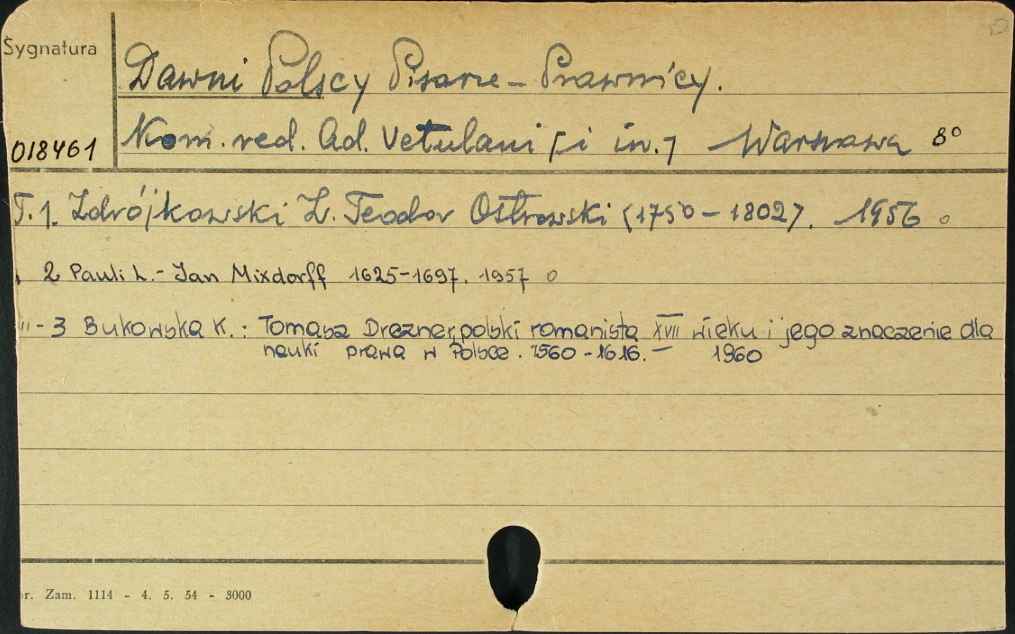 Sygnatura
Dawni Polscy Pisarze - Prawnicy.
018461
Kom. red. Ad. Vetulani [i in.] Warszawa 8°
T. 1. Zdrójkowski Z. Teodor Ostrowski (1750-1802). 1956 o
2 Pauli L. - Jan Mixdorff 1625-1697. 1957 o
"- 3 Bukowska K.: Tomasz Drezner, polski romanista XVII wieku i jego znaczenie dla
nauki prawa w Polsce. 1560-1616. - 1960
r. Zam. 1114 - 4. 5. 54 - 3000